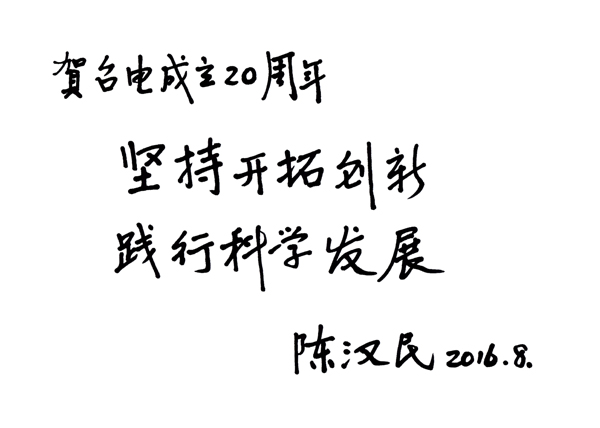 賀台电成立20周年
坚持开拓创新
践行科学发展
陈汉民 2016.8.